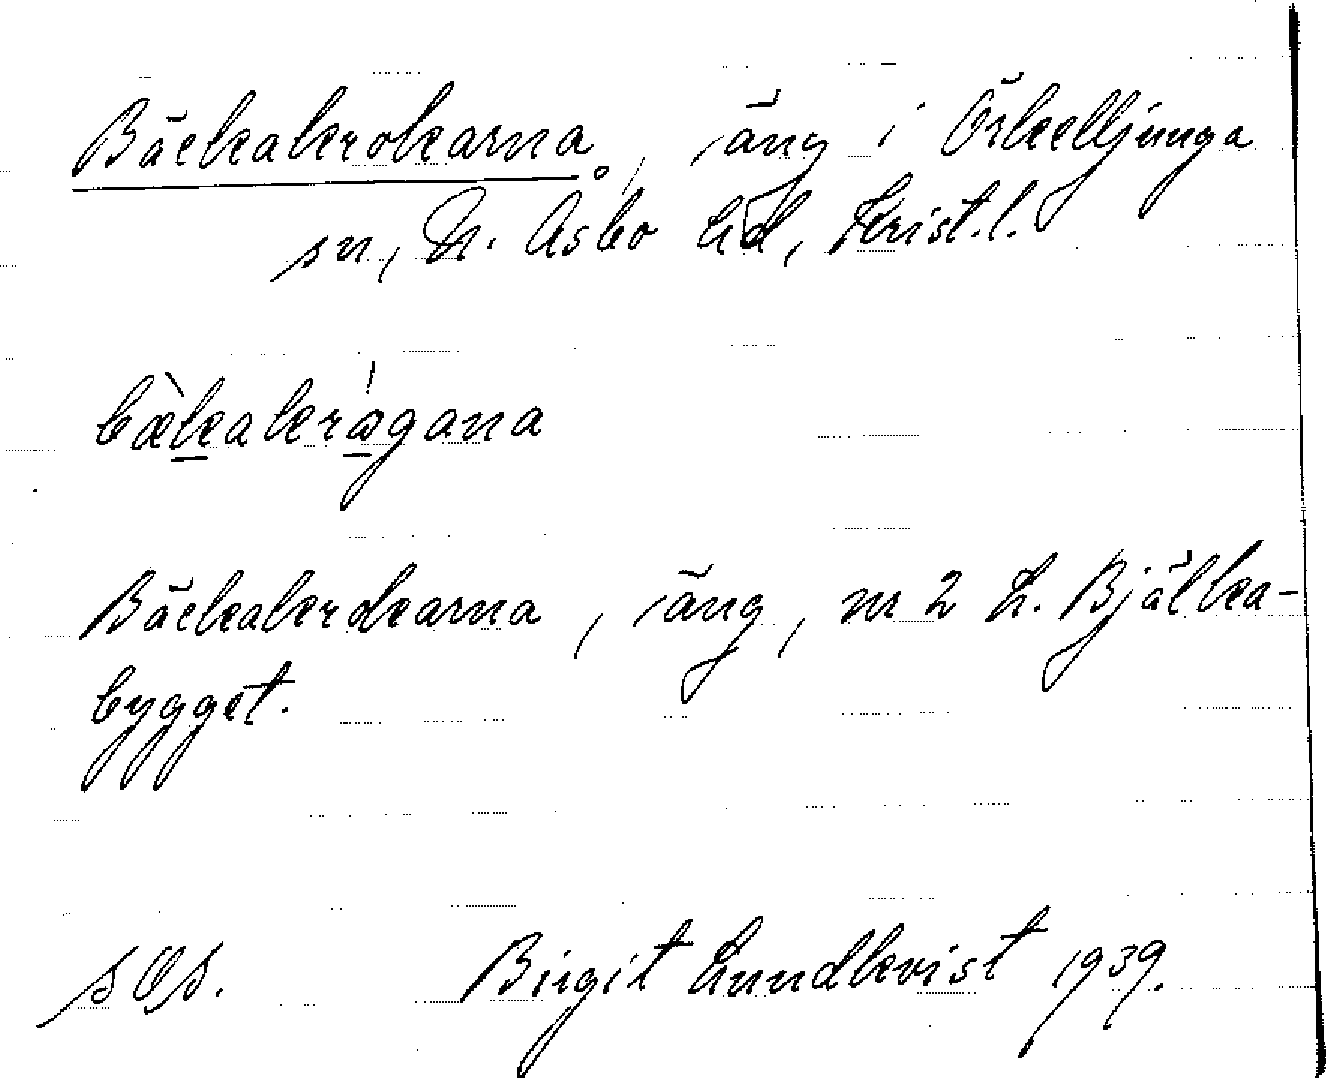 Bäckakrokarna, äng i Örkelljunga
sn, N. Åsbo hd, Krist. l.
bæ̀kakrågana
Bäckakrokarna, äng, nr 2 L. Bjälka-
bygget.
s Ös. Birgit Lundkvist 1939.